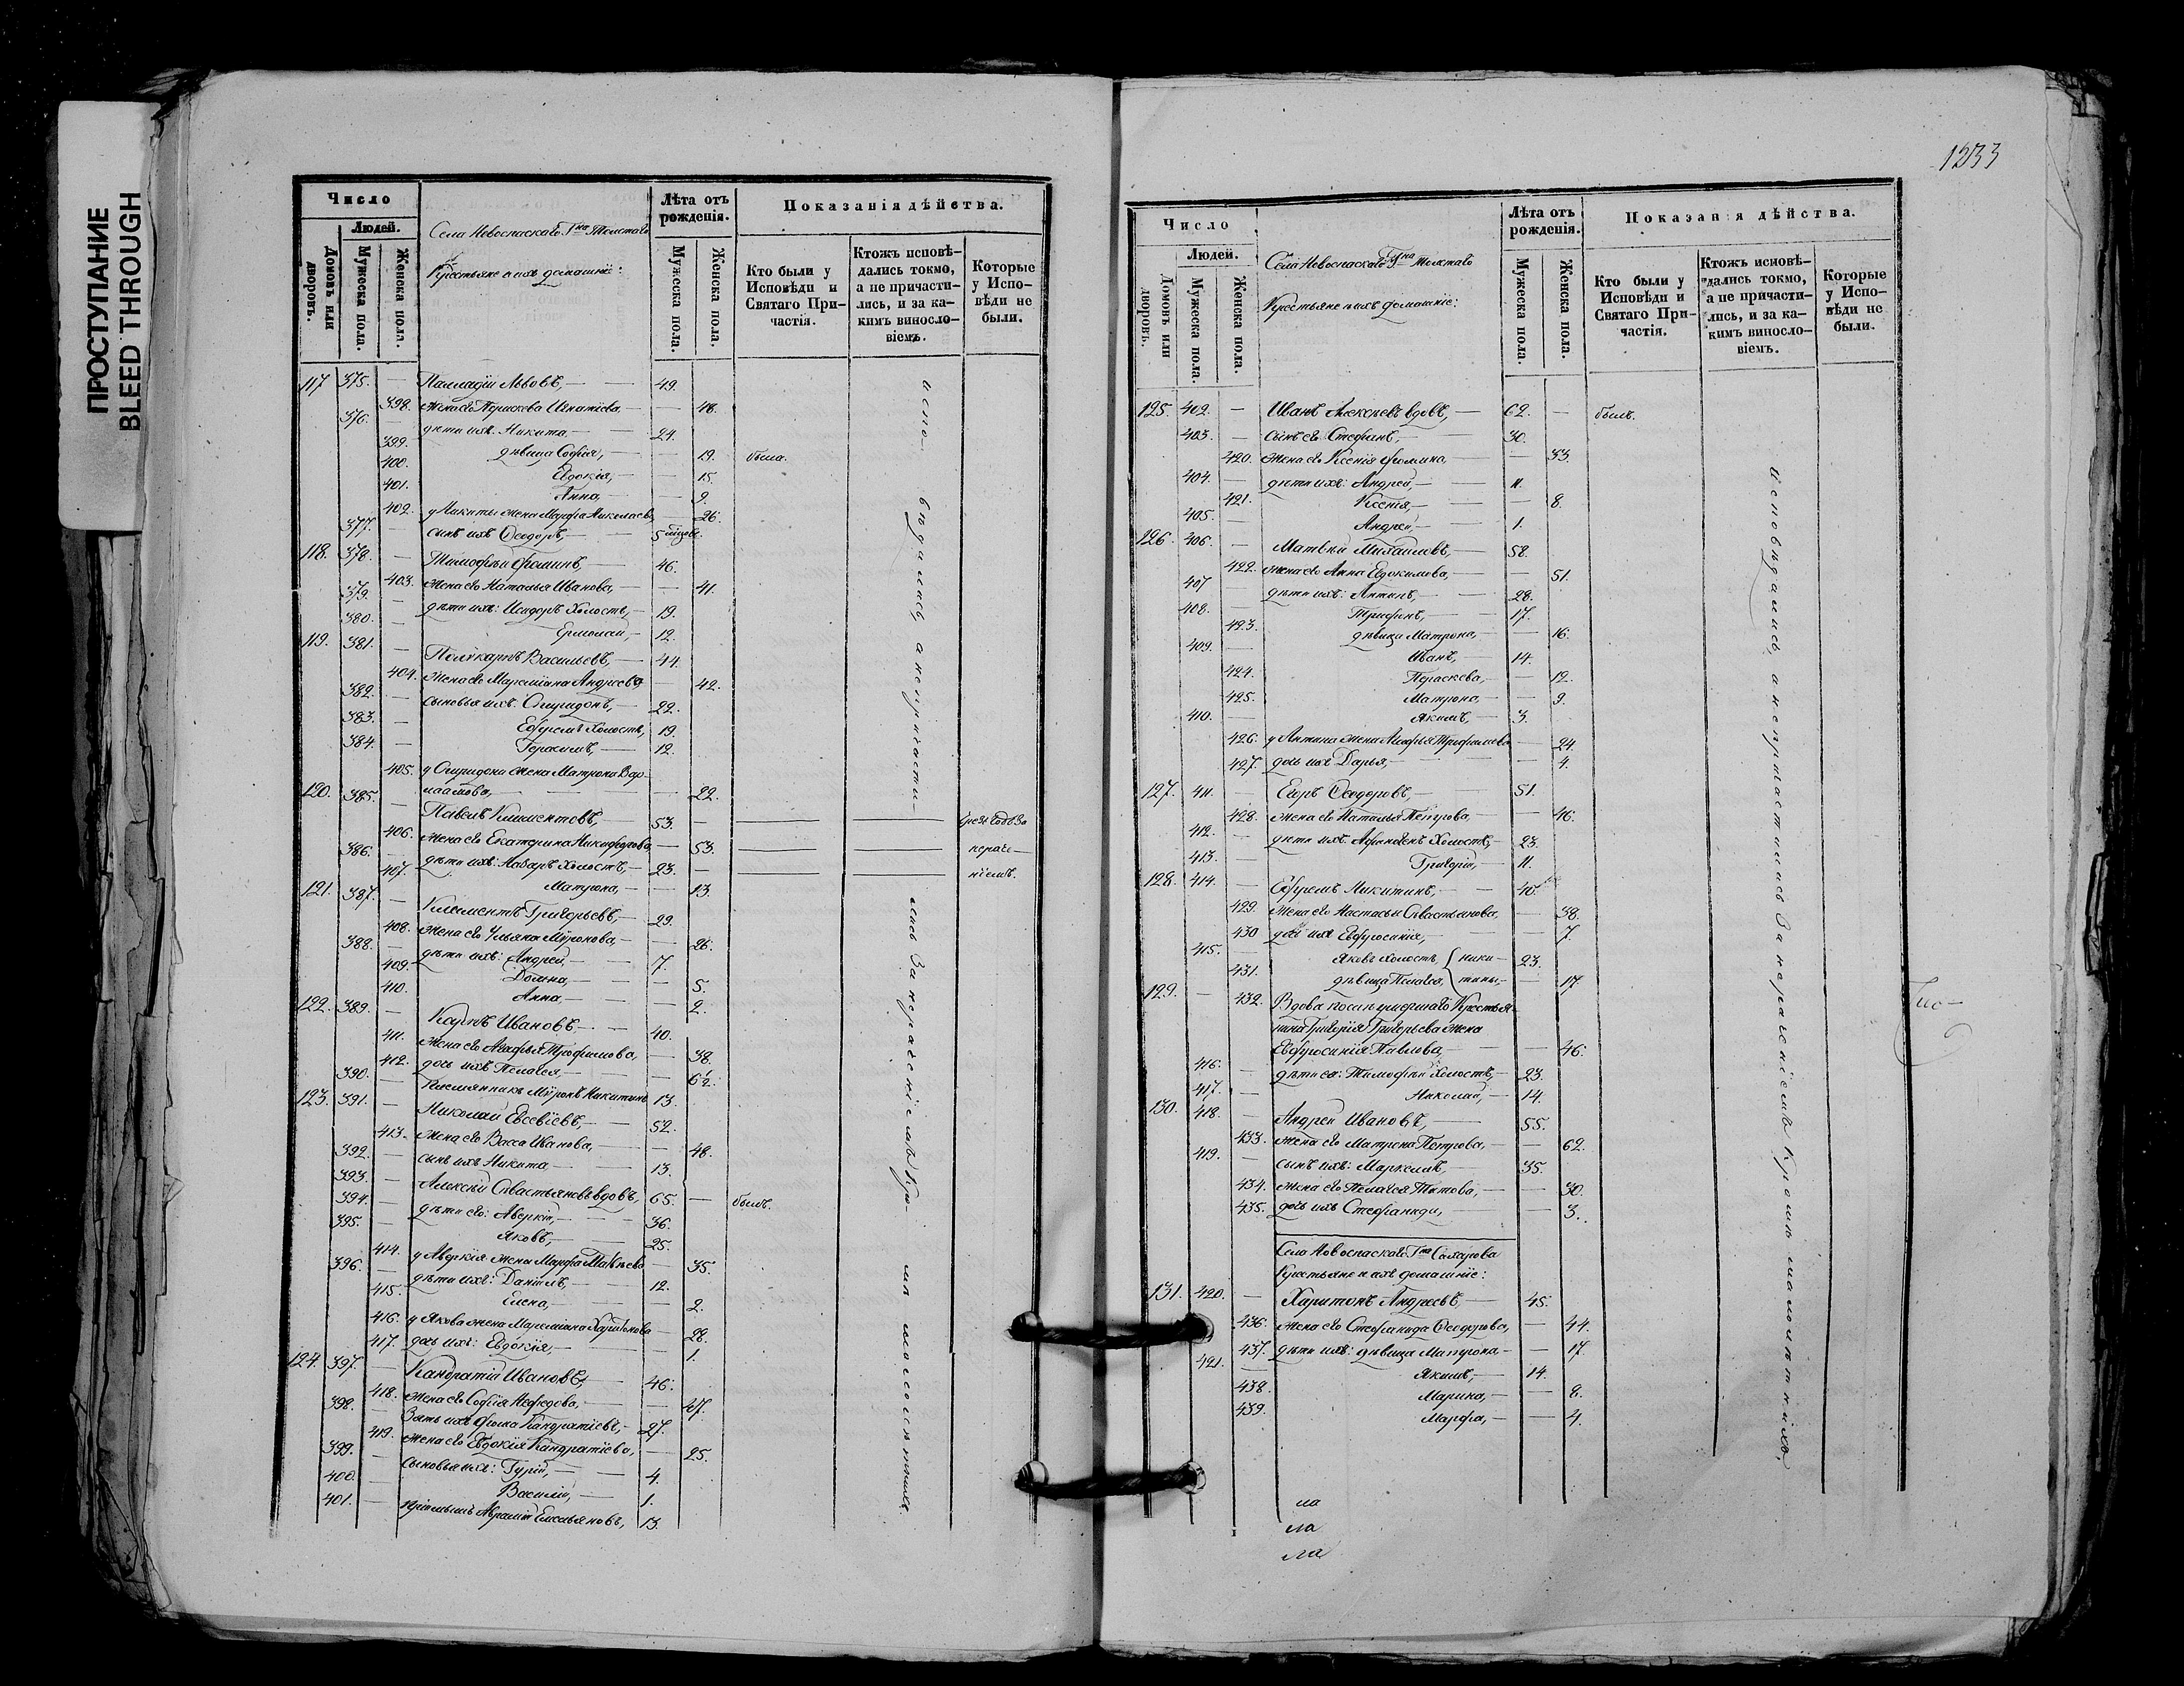 ПРОСТУПАНИЕ
BLEED THROUGH
Число
Людей.
Домовъ или дворовъ.
Мужеска пола.
Женска пола.
Села Новоспаскаго Гна Толстаго
Крестьяне и ихъ домашніе:
Лѣта отъ рожденія.
Мужеска пола.
Женска пола.
Показанія дѣйства.
Кто были у Исповѣди и Святаго Причастія.
Ктожъ исповѣдались токмо, а не причастились, и за какимъ винословіемъ.
Которые у Исповѣди не были.
117 375. — Палладій Львовъ, — 49.
398. жена его Параскева Игнатіева, — 48.
376. — дѣти ихъ: Никита — 24.
399. дѣвица Софія, — 19. была.
400. Евдокія, — 15.
401. Анна, — 9.
402. у Никиты жена Марфа Николаева 26.
377. сынъ ихъ Ѳеодоръ, — 5
118. 378. — Тимофѣй Фоминъ, — 46.
403. жена его Наталья Иванова, — 41.
379. — дѣти ихъ: Исидоръ холостъ, — 19.
380. — Ермолай, — 12.
119. 381. — Поликарпъ Васильевъ, — 44.
404. жена его Мареміана Андреева, — 42.
382. — сыновья ихъ: Спиридонъ, — 22.
383. — Ефремъ холостъ, 19.
384. — Герасимъ, — 12.
405. у Спиридона жена Матрона Вар-
лаамова, — 22.
120. 385. — Павелъ Климентовъ, — 53. —
406. жена его Екатерина Никифорова, — 53.
386. — дѣти ихъ: Назаръ холостъ, — 23. —
407. Матрона, — 13.
нераче-
ніемъ.
121. 387. — Климентъ Григорьевъ, — 29.
408. жена его Ульяна Миронова, — 26.
388. — дѣти ихъ: Андрей, — 7.
409. Домна, — 5.
410. Анна, — 2.
122. 389. — Карпъ Ивановъ, — 40.
411. жена его Агафья Трофимова, — 38.
412. дочь ихъ Пелагея, — 6½.
390. — племянникъ Миронъ Никитинъ 13.
123. 391. — Николай Евсевіевъ, — 52.
413. жена его Васса Иванова, — 48.
392. — сынъ ихъ Никита — 13.
393. — Алексѣй Савастьяновъ вдовъ, 65. — былъ.
394. — дѣти его: Аверкій, — 36.
395. — Яковъ, — 25.
414. у Аверкія жена Марфа Матвѣева 35.
396. — дѣти ихъ: Даніилъ, — 12.
415. Елена, — 2.
416. у Якова жена Мареміана Харитонова 28.
417. дочь ихъ: Евдокія, — 1.
124. 397. — Кандратій Ивановъ, — 46.
418. жена его Софія Нефедова, — 47.
398. — Зять ихъ Фома Кандратіевъ, — 27.
419. жена его Евдокія Кандратіева, — 25.
399. — сыновья ихъ: Гурій, — 4.
400. — Василій, — 1.
401. — пріемышъ Аврамій Емельяновъ, 13.
исповѣдались, а непричастились за нераченіемъ кромѣ малолѣтнихъ.
1233
Число
Людей.
Домовъ или дворовъ.
Мужеска пола.
Женска пола.
Села Новоспаскаго Гна Толстаго
Крестьяне и ихъ домашніе:
Лѣта отъ рожденія.
Мужеска пола.
Женска пола.
Показанія дѣйства.
Кто были у Исповѣди и Святаго Причастія.
Ктожъ исповѣдались токмо, а не причастились, и за какимъ винословіемъ.
Которые у Исповѣди не были.
125. 402. — Иванъ Алексѣевъ вдовъ, — 62. — былъ.
403. — сынъ его Стефанъ, — 30.
420. жена его Ксенія Фомина, — 33.
404. — дѣти ихъ: Андрей, — 11.
421. Ксенія, — 8.
405. — Андрей, — 1.
126. 406. — Матвѣй Михайловъ, — 58.
422. жена его Анна Евдокимова, — 51.
407 — дѣти ихъ: Антипъ, — 28.
408. — Трифонъ, — 17.
423. дѣвица Матрона, — 16.
409. — Иванъ, — 14.
424. Параскева, — 12.
425. Матрона, — 9.
410. — Якимъ, — 3.
426. у Антипа жена Агафья Трофимова — 24
427. дочь ихъ Дарья, — 4.
127. 411. — Егоръ Ѳеодоровъ, — 51.
428. жена его Наталья Петрова, — 46.
412. — дѣти ихъ: холостъ, — 23.
413. Григорій, — 11.
128. 414. — Ефремъ Никитинъ, — 40.
429. жена его Настасья Савастьянова, — 38.
430 дочь ихъ Евфросинія, — 7.
415. — Яковъ холостъ, { Ники- 23.
431. дѣвица Пелагея, { тины, — 17
129. — 432. Вдова послѣ умершаго Крестья-
нина Григорія Григорьева жена
Евфросинія Павлова, — 46.
416. — дѣти ея: Тимофѣй холостъ, — 23.
417. — Николай, — 14.
130. 418. — Андрей Ивановъ, — 55.
433. жена его Матрона Петрова, — 62.
419. — сынъ ихъ: Маркеллъ, — 35.
434. жена его Пелагея Титова, — 30.
435. дочь ихъ Стефанида, — 3.
Села Новоспаскаго Гна Сахарова
Крестьяне и ихъ домашніе:
131. 420. — Харитонъ Андреевъ — 45.
436. жена его Стефанида Ѳеодорова, — 44.
437. дѣти ихъ: дѣвица Матрона — 17.
421. — Якимъ, — 14.
438. Марина, — 8.
439. Марфа, — 4.
исповѣдались, а непричастились за нераченіемъ кромѣ малолѣтнихъ,
ла
ла
ла